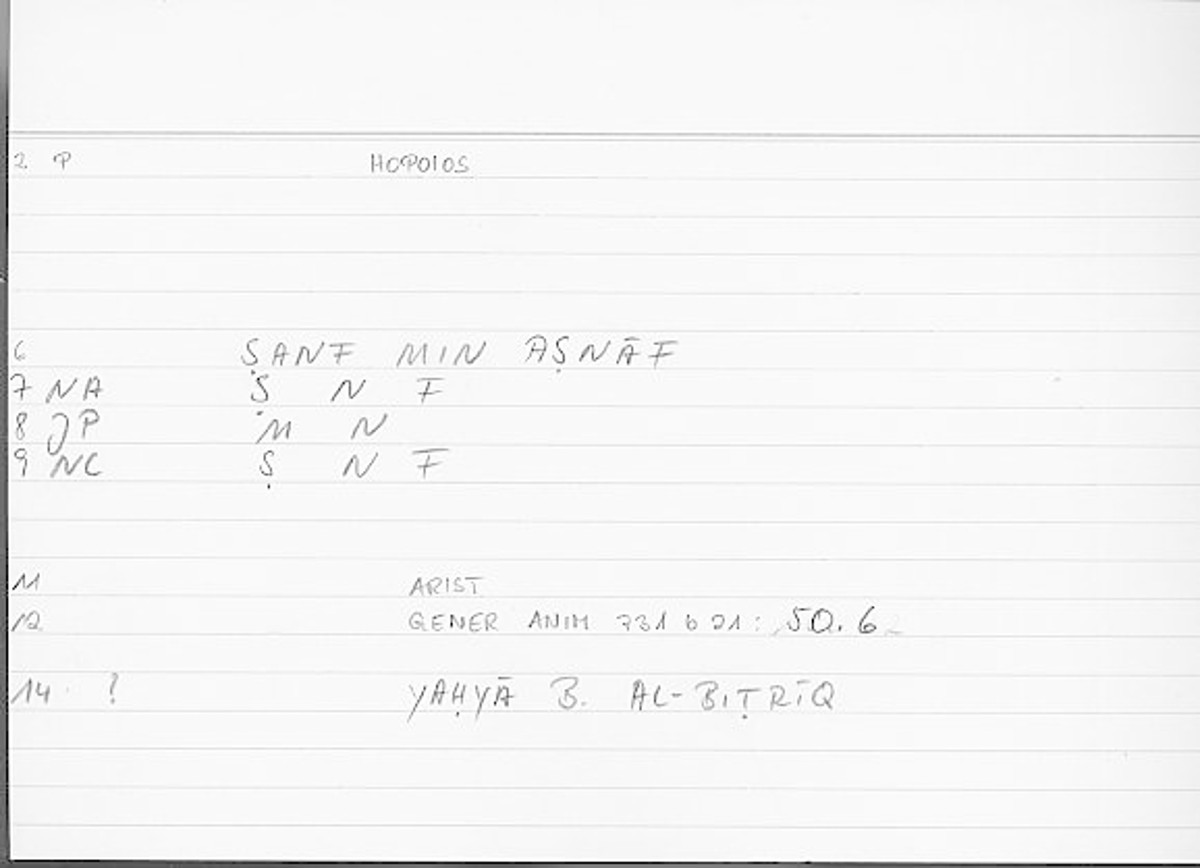 2 P HOPOIOS
6 ṢANF MIN AṢNĀF
7 NA Ṣ N F
8 JP M N
9 NC Ṣ N F
11 ARIST
12 GENER ANIM 731 b 21: 50.6
14 ? YAḤYĀ B. AL-BIṬRĪQ